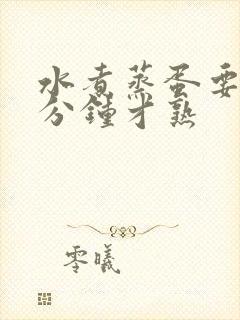 水煮蒸蛋要
分鍾才熟
零曦